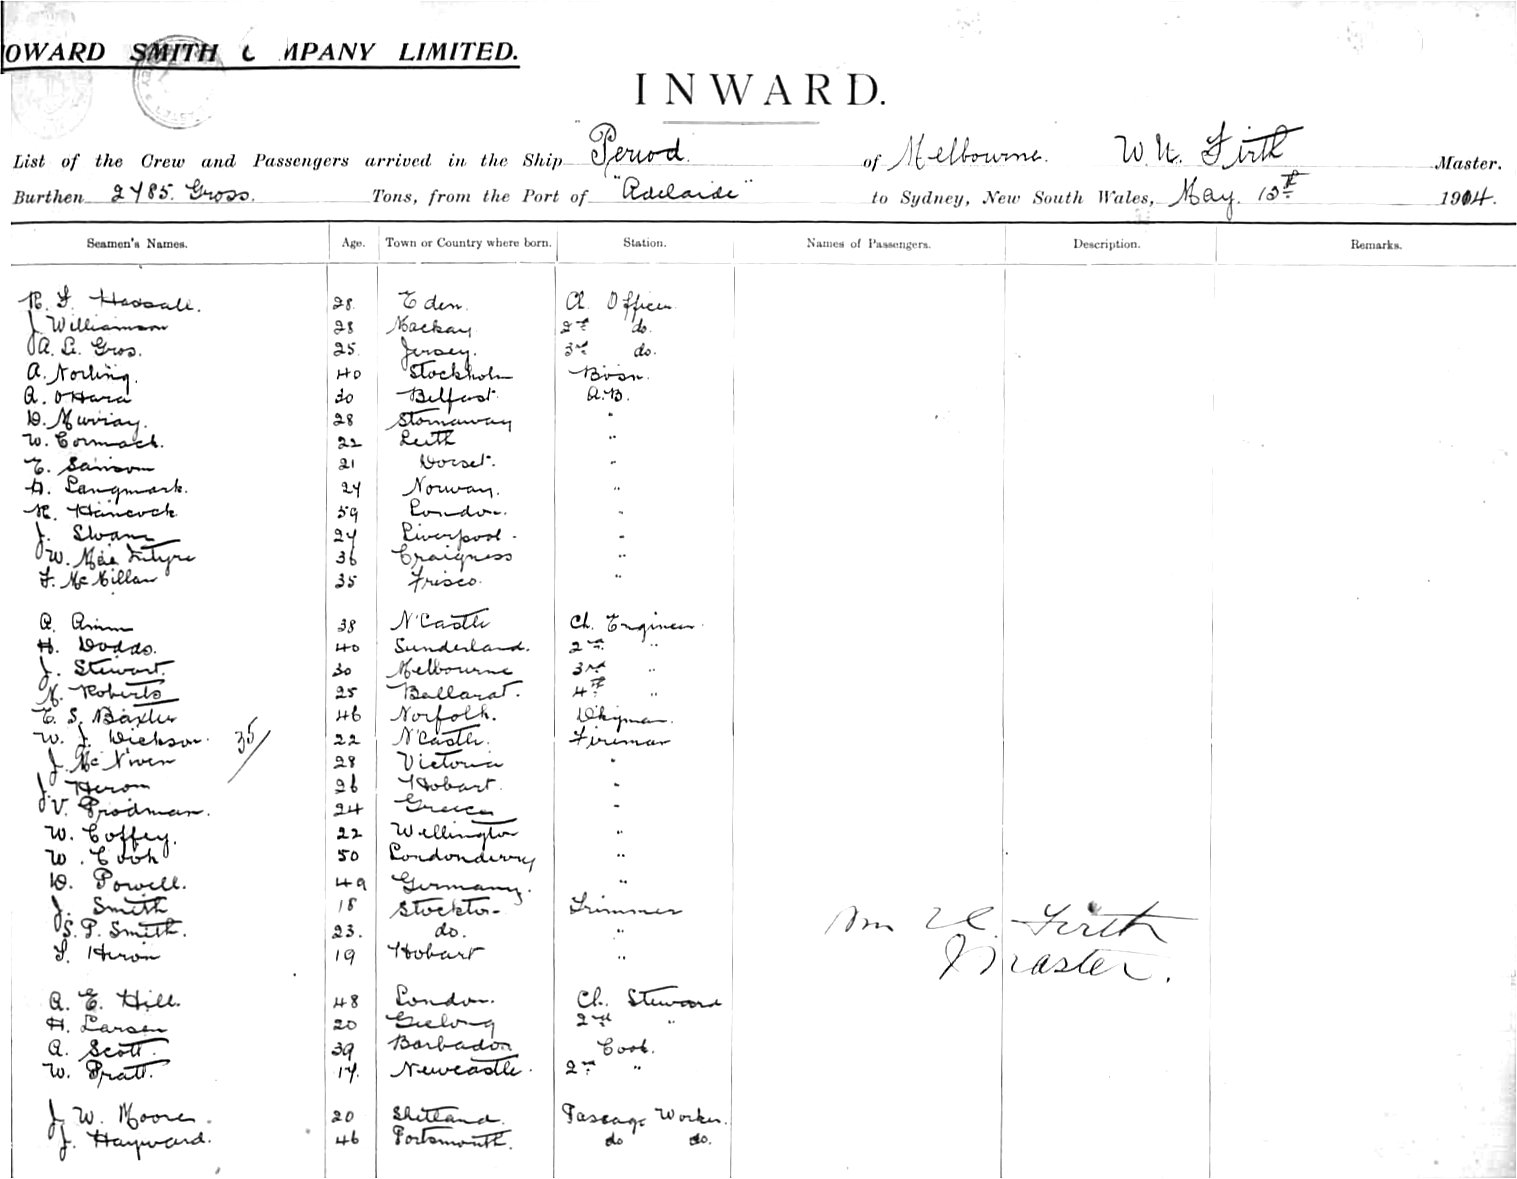 OWARD SMITH C MPANY LIMITED.
INWARD.
List of the Crew and Passengers arrived in the Ship "Period of Melbourne. W. H. Firth Master.
Burthen 2785. Gross. Tons, from the Port of "Adelaide" to Sydney, New South Wales, May. 13th 1904.
Seamen's Names. Age. Town or Country where born. Station. Names of Passengers. Description. Remarks.
R. F. Hassall. 28. Eden. Ch. Officer
J. Williamson 28 Mackay 2nd do.
A. Le Gros. 25. Jersey. 3rd do.
A. Norling. 40 Stockholm Bosn.
A. O'Hara 30 Belfast. A.B.
D. Murray. 28 Stornaway "
W. Cormack. 22 Leith "
E. Sansom 21 Dorset. "
H. Langmark. 27 Norway. "
R. Hancock 59 London. "
J. Swann 27 Liverpool. "
W. MacIntyre 36 Craigness "
F. McMillan 35 Frisco. "
A. 38 N'Castle Ch. Engineer.
H. Dodds. 40 Sunderland. 2nd "
J. Stewart. 30 Melbourne 3rd "
M. Roberts 25 Ballarat. 4th "
E. S. Baxter 46 Norfolk. Dkyman.
W. J. Dickson. 35/ 22 N'Castle. Fireman
J. McNiven 28 Victoria "
J. Heron 26 Hobart. "
V. Prodman. 24 Greece "
W. Coffey. 22 Wellington "
W. Cook 50 Londonderry "
D. Powell. 49 Germany. "
J. Smith 18 Stockton Trimmer
S. P. Smith. 23. do. "
T. Heron 19 Hobart "
Wm H. Firth
Master.
A. E. Hill. 48 London. Ch. Steward
H. Larsen 20 Geelong 2nd "
A. Scott. 39 Barbados Cook.
W. Pratt. 17. Newcastle. 2nd "
J. W. Moore. 20 Shetland. Passage Worker.
J. Hayward. 46 Portsmouth. do do.